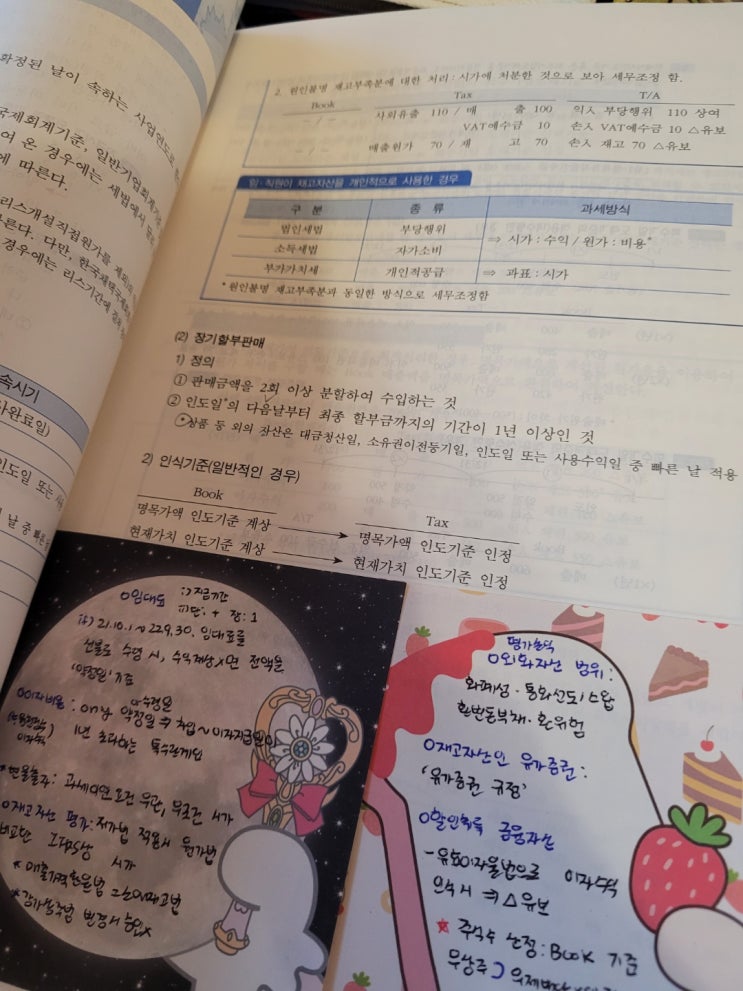 확정된 날이 속하는 사업연도로
국제회계기준, 일반기업회계기준
여 온 경우에는 세법에서
에 따른다.
리스개설직접원가를 제외
른다. 다만, 한국채택국제회계
경우에는 리스기간에 걸쳐
속시기
사완료일)
인도일 또는
날 중 빠른
2. 원인불명 재고부족분에 대한 처리 : 시가에 처분한 것으로 보아 세무조정 함.
Book Tax T/A
- / - 사외유출 110 / 매 출 100 익入 부당행위 110 상여
VAT예수금 10 손入 VAT예수금 10 △유보
- / - 매출원가 70 / 재 고 70 손入 재고 70 △유보
임·직원이 재고자산을 개인적으로 사용한 경우
구 분 종 류 과세방식
법인세법 부당행위 ⇒ 시가 : 수익 / 원가 : 비용*
소득세법 자가소비
부가가치세 개인적공급 ⇒ 과표 : 시가
* 원인불명 재고부족분과 동일한 방식으로 세무조정함
(2) 장기할부판매
1) 정의
① 판매금액을 2회 이상 분할하여 수입하는 것
② 인도일*의 다음날부터 최종 할부금까지의 기간이 1년 이상인 것
*상품 등 외의 자산은 대금청산일, 소유권이전등기일, 인도일 또는 사용수익일 중 빠른 날 적용
2) 인식기준(일반적인 경우)
Book Tax
명목가액 인도기준 계상 명목가액 인도기준 인정
현재가치 인도기준 계상 현재가치 인도기준 인정
○임대료 i) 지급기간
ii) 단: + 장: 1
ex) 21.10.1 ~ 22.9.30. 임대료를
선불로 수령 시, 수익계상 x면 전액을
'약정일' 기준
○이자비용 :
1년 초과하는 특수관계인
*현물출자 : 과세이연요건 무관, 무조건 시가
○재고자산 평가 : 저가법 적용시 원가법
시가
*매출가격환원법
평가손익
○외화자산 범위 :
화폐성 · 통화선도 / 스왑
환변동부채 · 환위험
○재고자산인 유가증권 :
'유가증권 규정'
○할인취득 금융자산
- 유효이자율법으로 이자수익
인식시 ⇒ △유보
★ 주식수 산정 : BOOK 기준
무상주